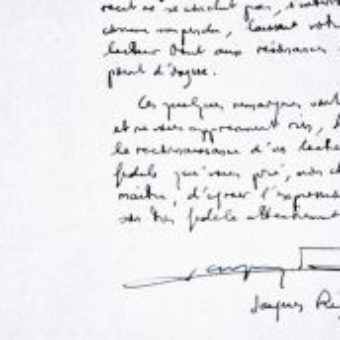 récit ne se conclut pas,
comme suspendu, laissant votre
lecteur tout aux résonances
point d'orgue.
Ces quelques remarques
et ne vous apprennent rien,
la reconnaissance d'un lecteur
fidèle qui vous prie, mon cher
maître, d'agréer l'expression
très fidèle attachement
Jacques